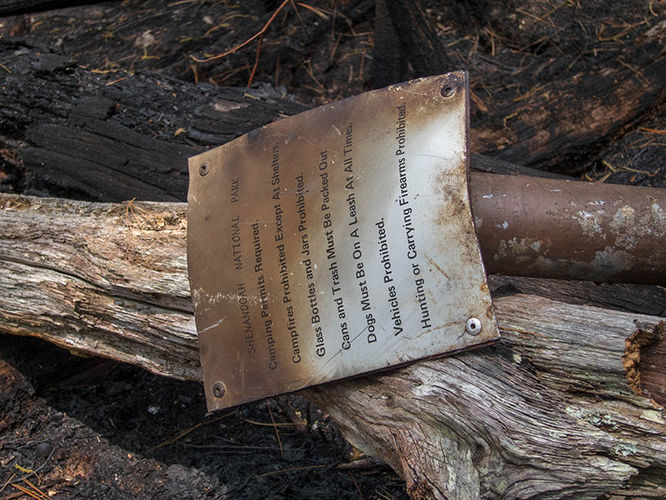 SHENANDOAH NATIONAL PARK
Camping Permits Required.
Campfires Prohibited Except At Shelters.
Glass Bottles and Jars Prohibited.
Cans and Trash Must Be Packed Out.
Dogs Must Be On A Leash At All Times.
Vehicles Prohibited.
Hunting or Carrying Firearms Prohibited.